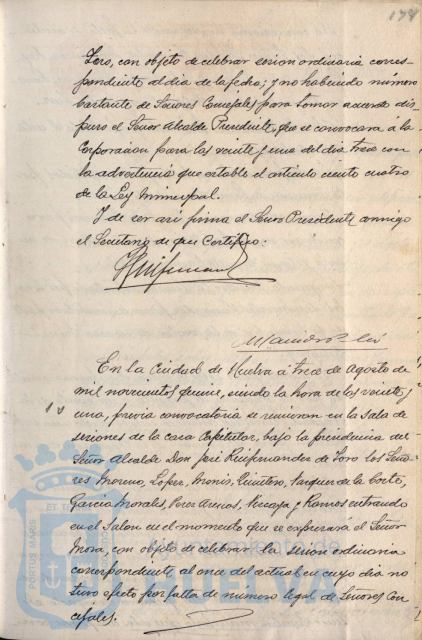 178
Toro, con objeto de celebrar sesion ordinaria corres-
pondiente al dia de la fecha; y no habiendo número
bastante de Señores Concejales para tomar acuerdo dis-
puso el Señor Alcalde Presidente, que se convocara á la
Corporacion para las veinte y una del dia trece con
la advertencia que establece el artículo ciento cuatro
de la Ley Municipal.
Y de ser asi firma el Señor Presidente conmigo
el Secretario de que Certifico:
En la Ciudad de Huelva á trece de Agosto de
mil novecientos quince, siendo la hora de las veinte y
una, previa convocatoria se reunieron en la Sala de
sesiones de la casa Capitular, bajo la presidencia del
Señor Alcalde Don José Ruifernandez de Toro los Seño-
res Moreno, Lopez, Monis, Quintero, Vazquez de la Corte,
Garcia Morales, Perez, Vizcaya y Ramos entrando
en el Salon en el momento que se expresará el Señor
Mora, con objeto de celebrar la sesion ordinaria
correspondiente al once del actual en cuyo dia no
tuvo efecto por falta de numero legal de Señores Con-
cejales.
PORTUS MARIS
Ayuntamiento de
HUELVA